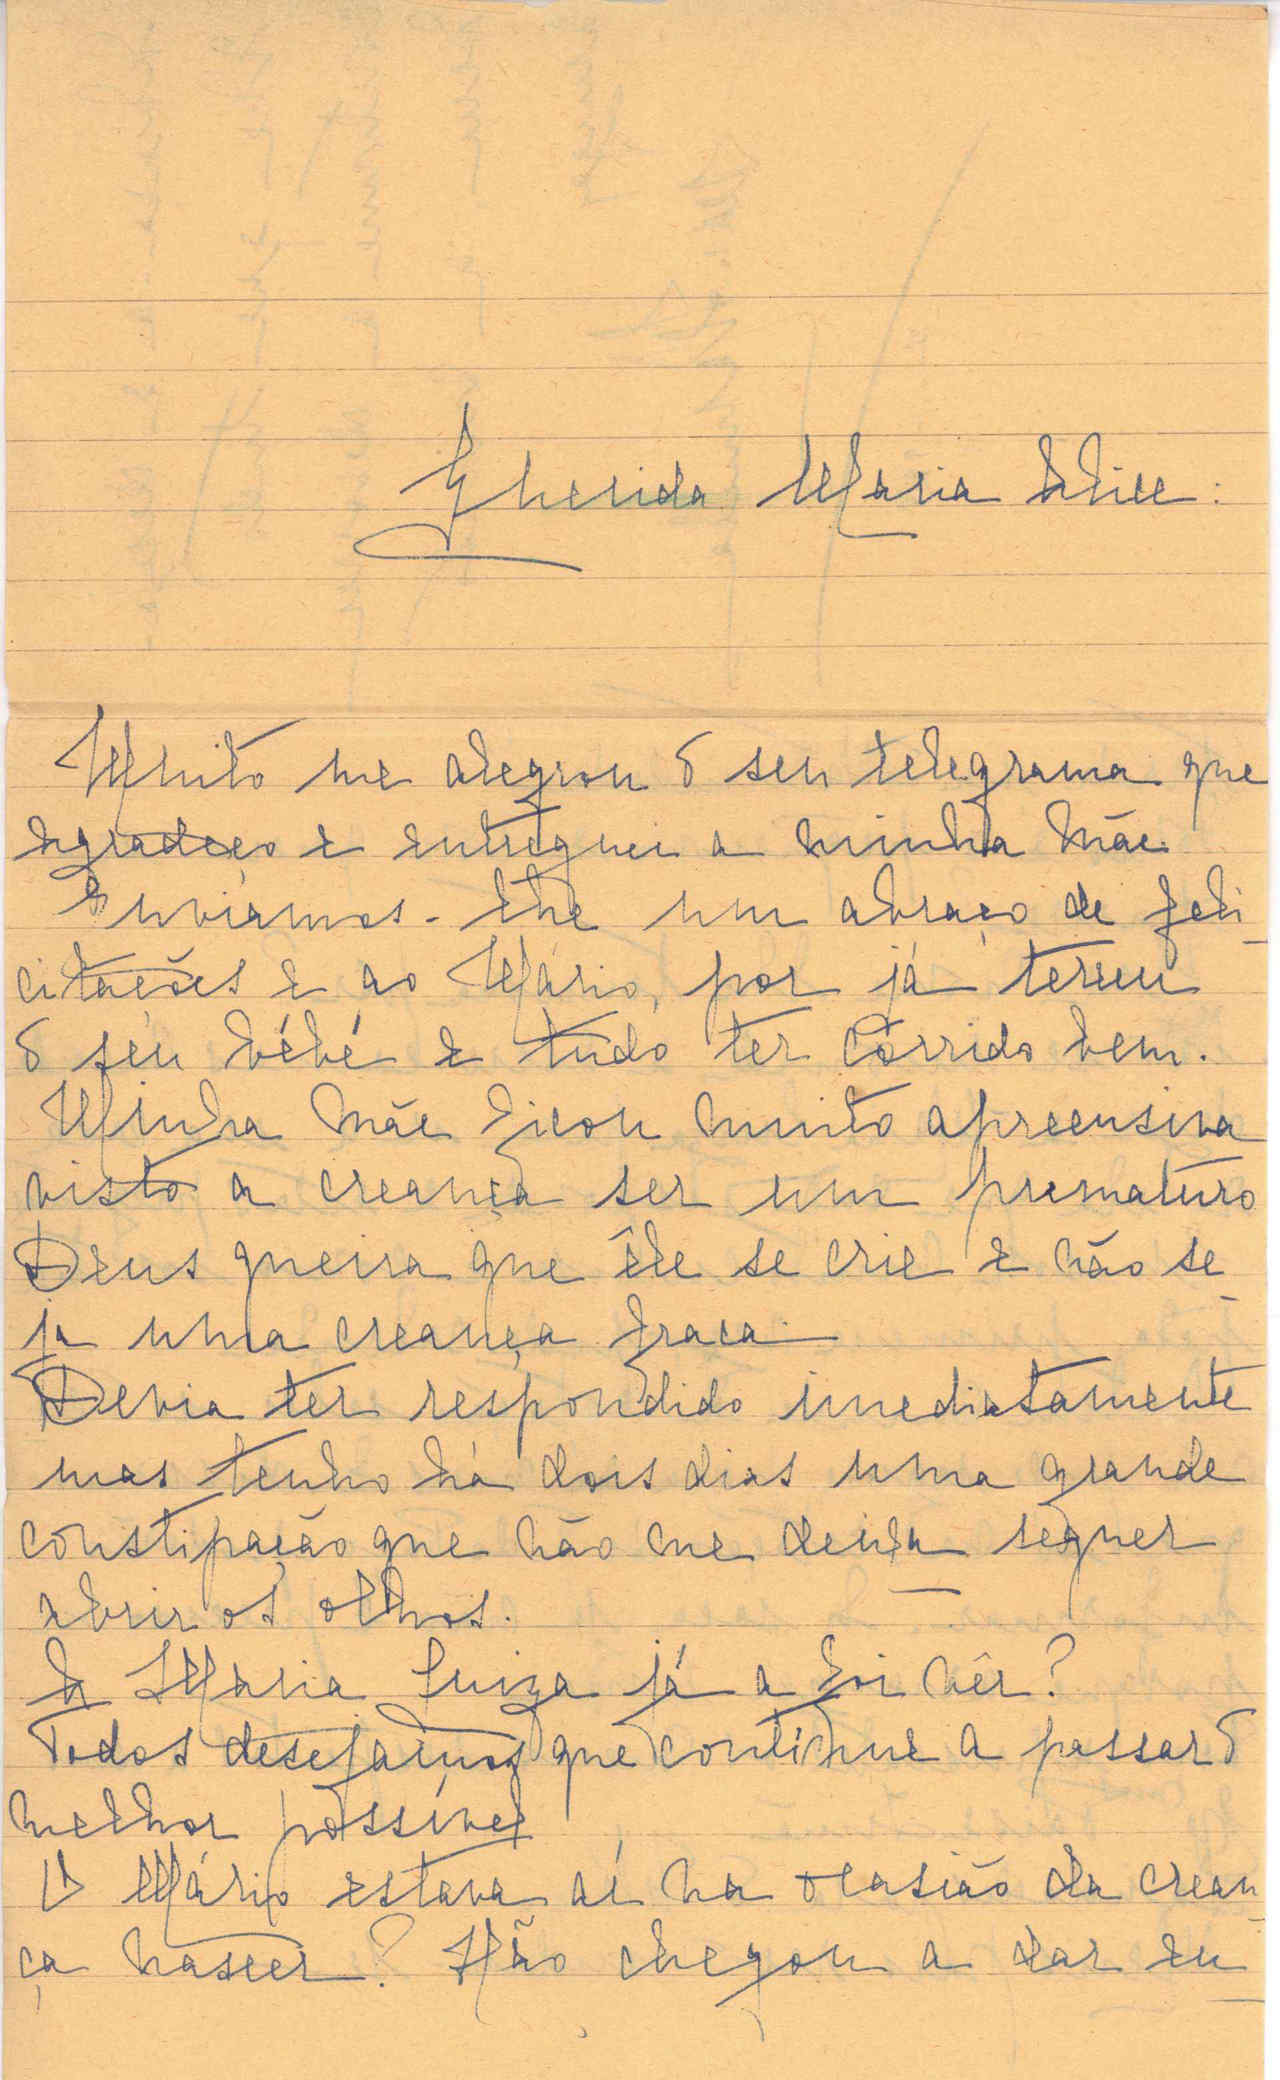 Querida Maria Alice:
Muito me alegrou o seu telegrama que
agradeço e entreguei a minha Mãe.
Enviamos-lhe um abraço de feli-
citações e ao Mário, por já terem
o seu bébé e tudo ter corrido bem.
Minha Mãe ficou muito apreensiva
visto a creança ser um prematuro
Deus queira que êle se crie e não se-
ja uma creança fraca.
Devia ter respondido imediatamente
mas tenho há dois dias uma grande
constipação que não me deixa sequer
abrir os olhos.
A Maria Luiza já a foi vêr?
Todos desejamos que continue a passar o
melhor possível
O Mário estava aí na ocasião da crean-
ça nascer? Não chegou a dar en-